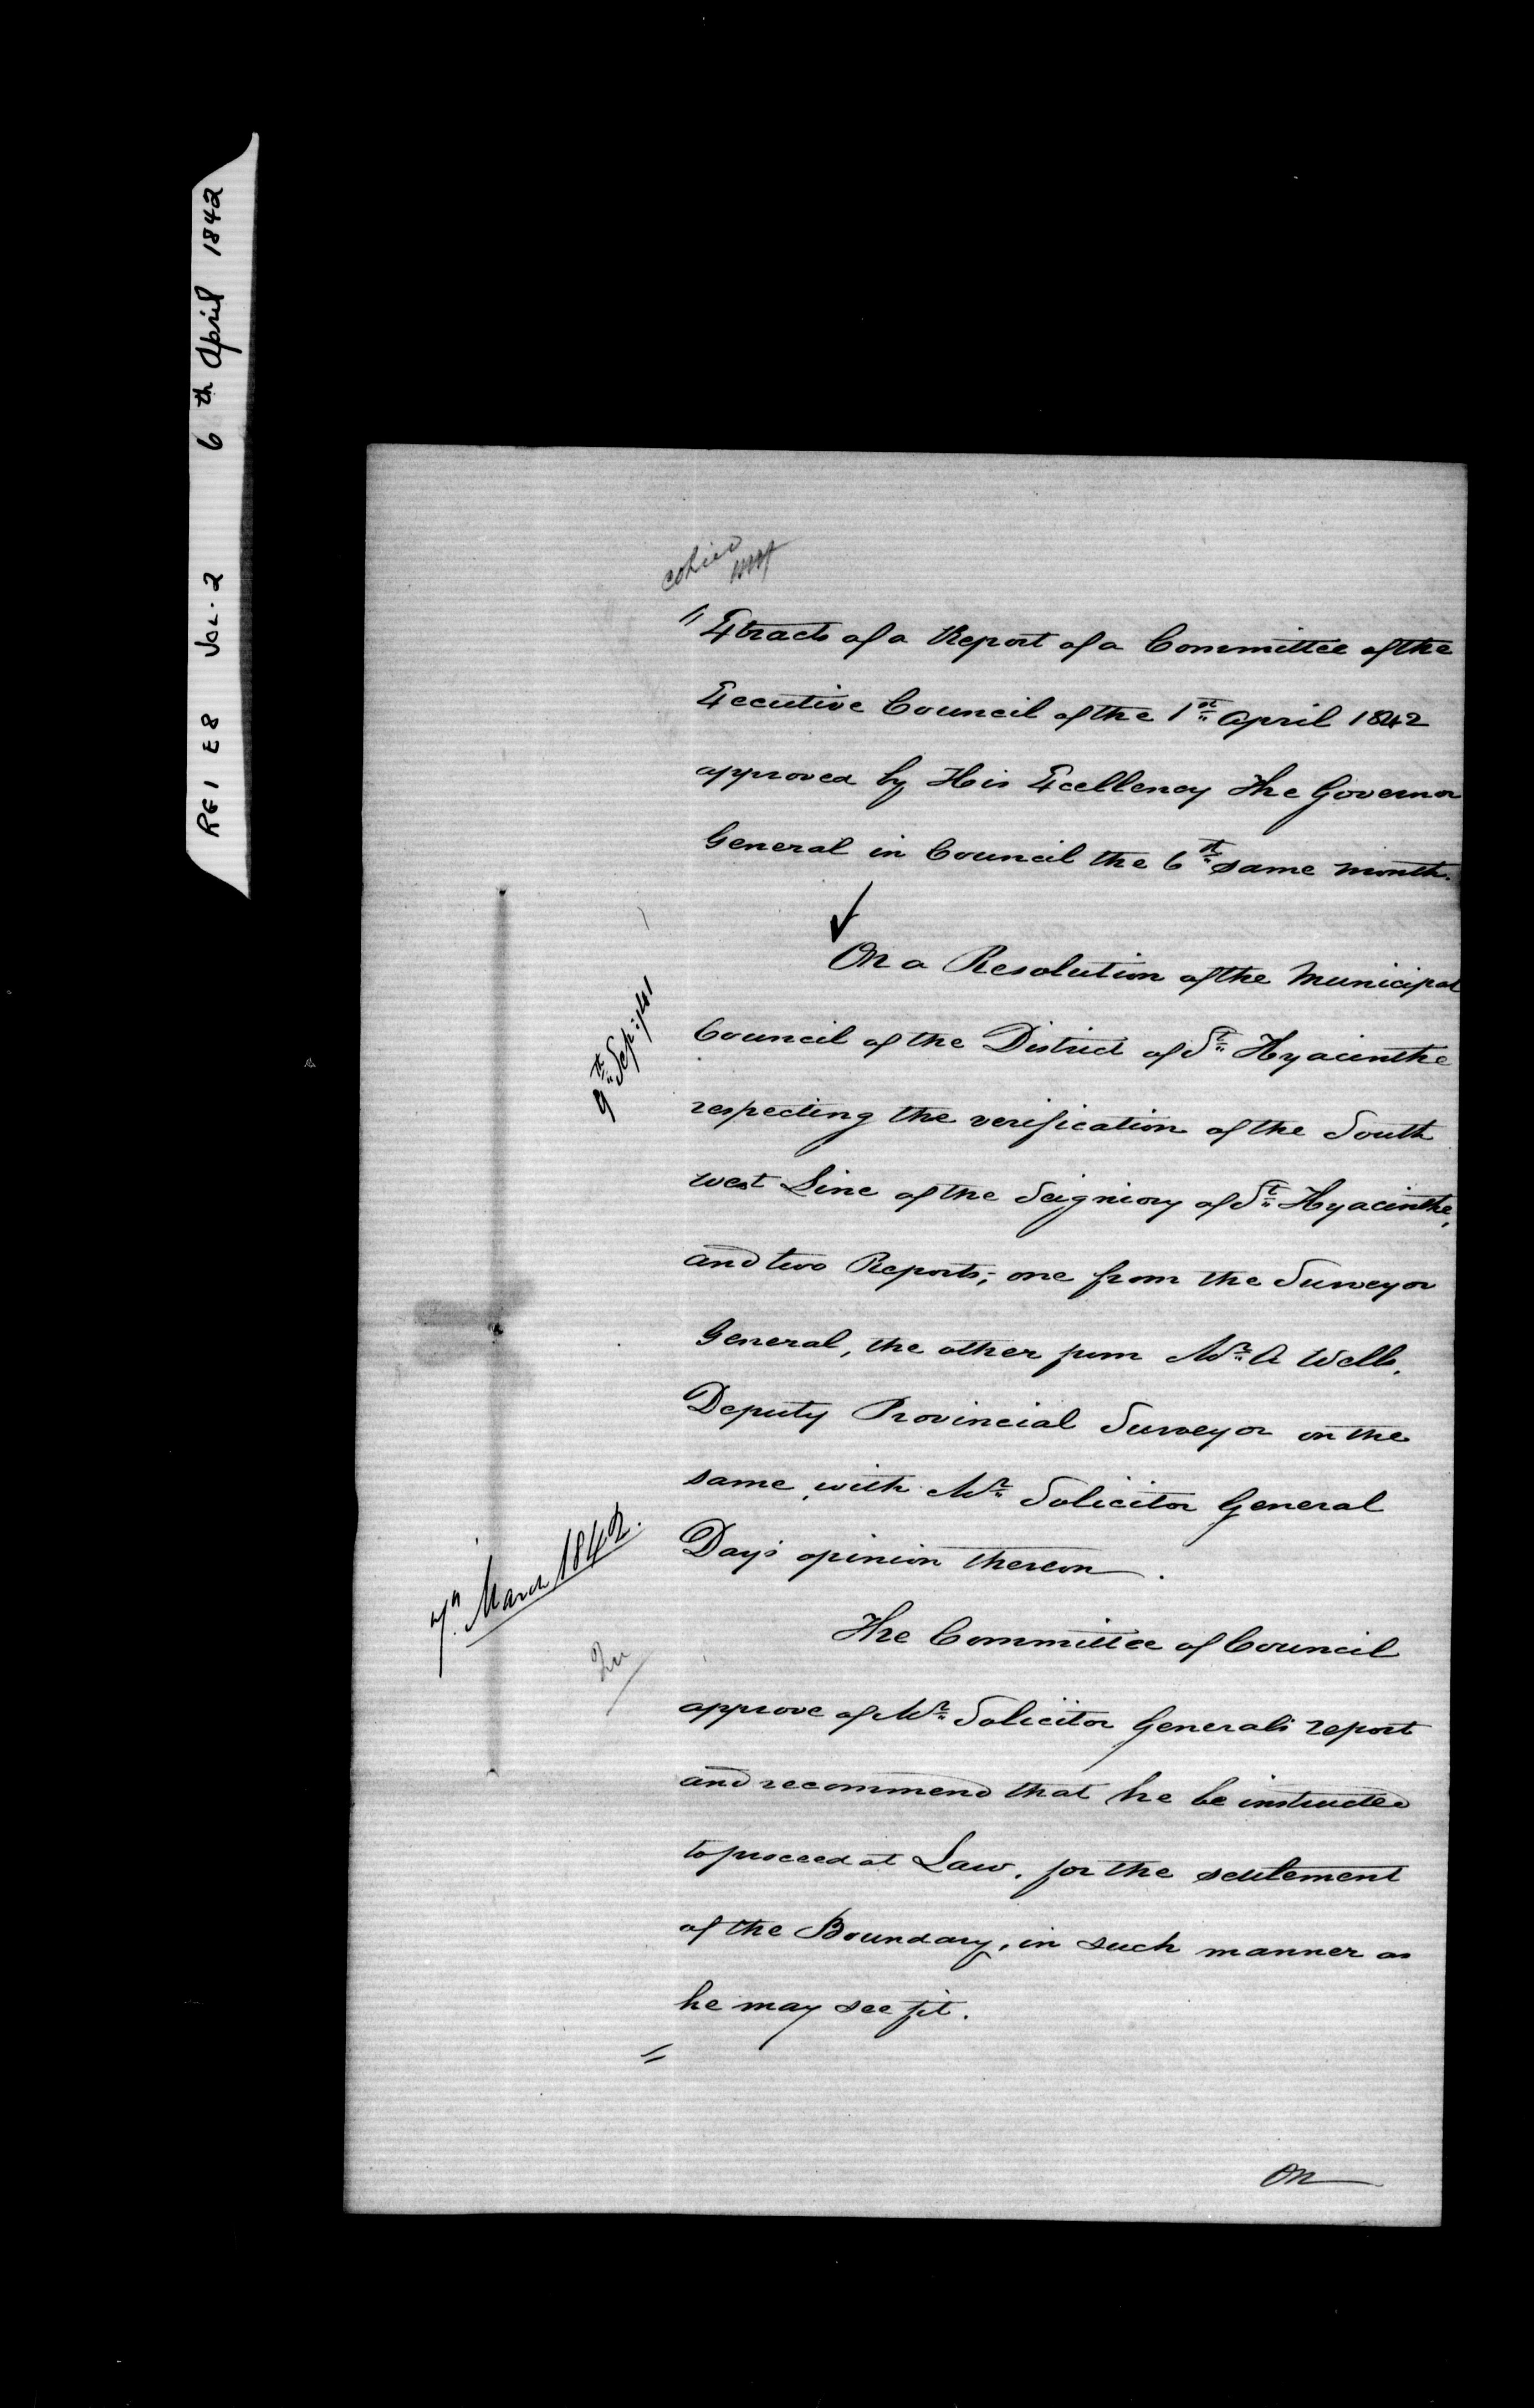 RG1 E8 Vol. 2 6th April 1842
copied
"Extracts of a Report of a Committee of the
Executive Council of the 1st April 1842
approved by His Excellency The Governor
General in Council the 6th same month.
On a Resolution of the Municipal
9th Sep: 1841
Council of the District of St Hyacinthe
respecting the verification of the South
west Line of the Seigniory of St Hyacinthe,
and two Reports; one from the Surveyor
General, the other from Mr A Wells,
Deputy Provincial Surveyor on the
same, with Mr Solicitor General
7th March 1842.
Day's opinion thereon.
The Committee of Council
approve of Mr Solicitor General's report
and recommend that he be instructed
to proceed at Law, for the settlement
of the Boundary, in such manner as
he may see fit.
"
On